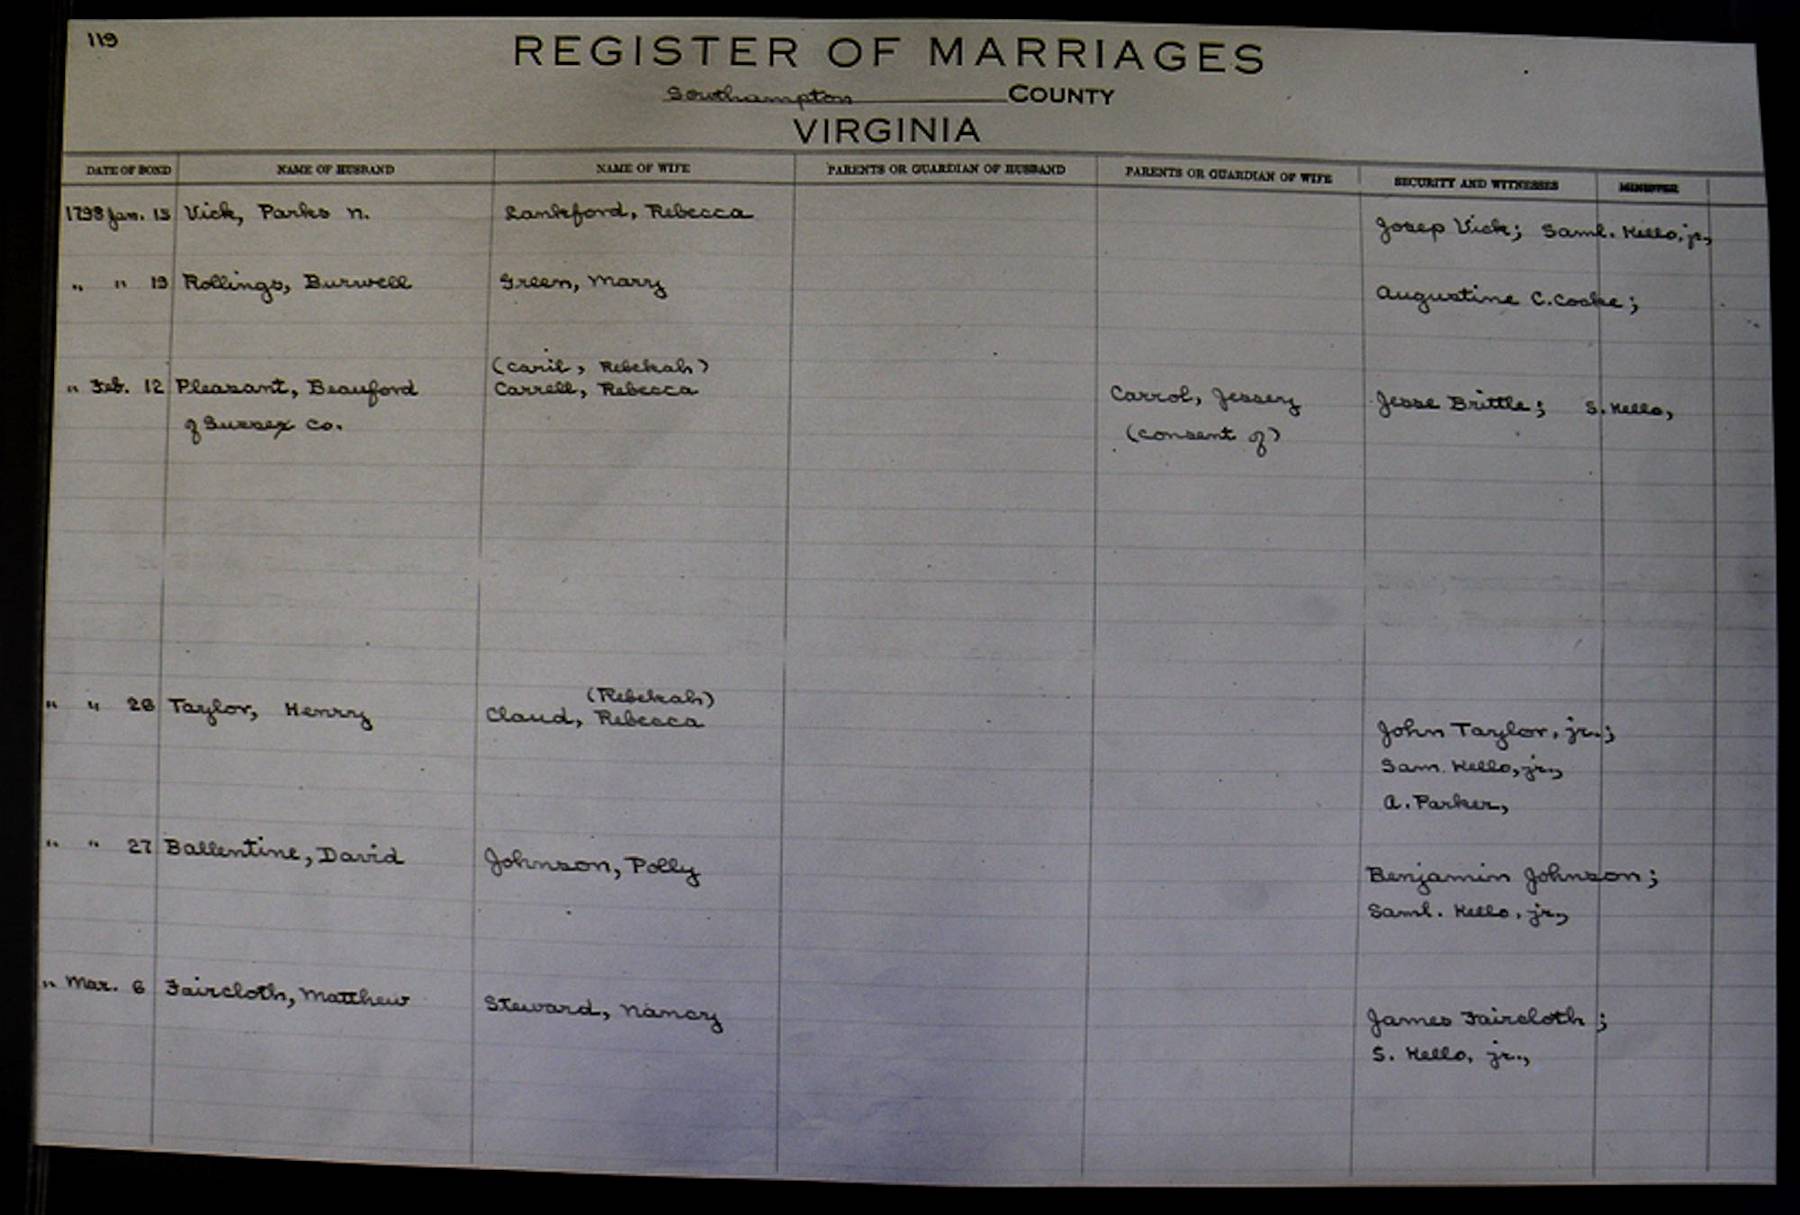 119
REGISTER OF MARRIAGES
Southampton COUNTY
VIRGINIA
DATE OF BOND NAME OF HUSBAND NAME OF WIFE PARENTS OR GUARDIAN OF HUSBAND PARENTS OR GUARDIAN OF WIFE SECURITY AND WITNESSES MINISTER
1798 Jan. 15 Vick, Parks N. Lankford, Rebecca Josep Vick; Saml. Kello, jr.,
" " 19 Rollings, Burwell Green, Mary Augustine C. Cocke;
(Caril, Rebekah)
" Feb. 12 Pleasant, Beauford Carrell, Rebecca Carrol, Jessey Jesse Brittle; S. Kello,
of Sussex Co. (consent of)
(Rebekah)
" " 26 Taylor, Henry Claud, Rebecca John Taylor, jr.;
Sam. Kello, jr.,
A. Parker,
" " 27 Ballentine, David Johnson, Polly Benjamin Johnson;
Saml. Kello, jr.,
" Mar. 6 Faircloth, Matthew Steward, Nancy James Faircloth;
S. Kello, jr.,